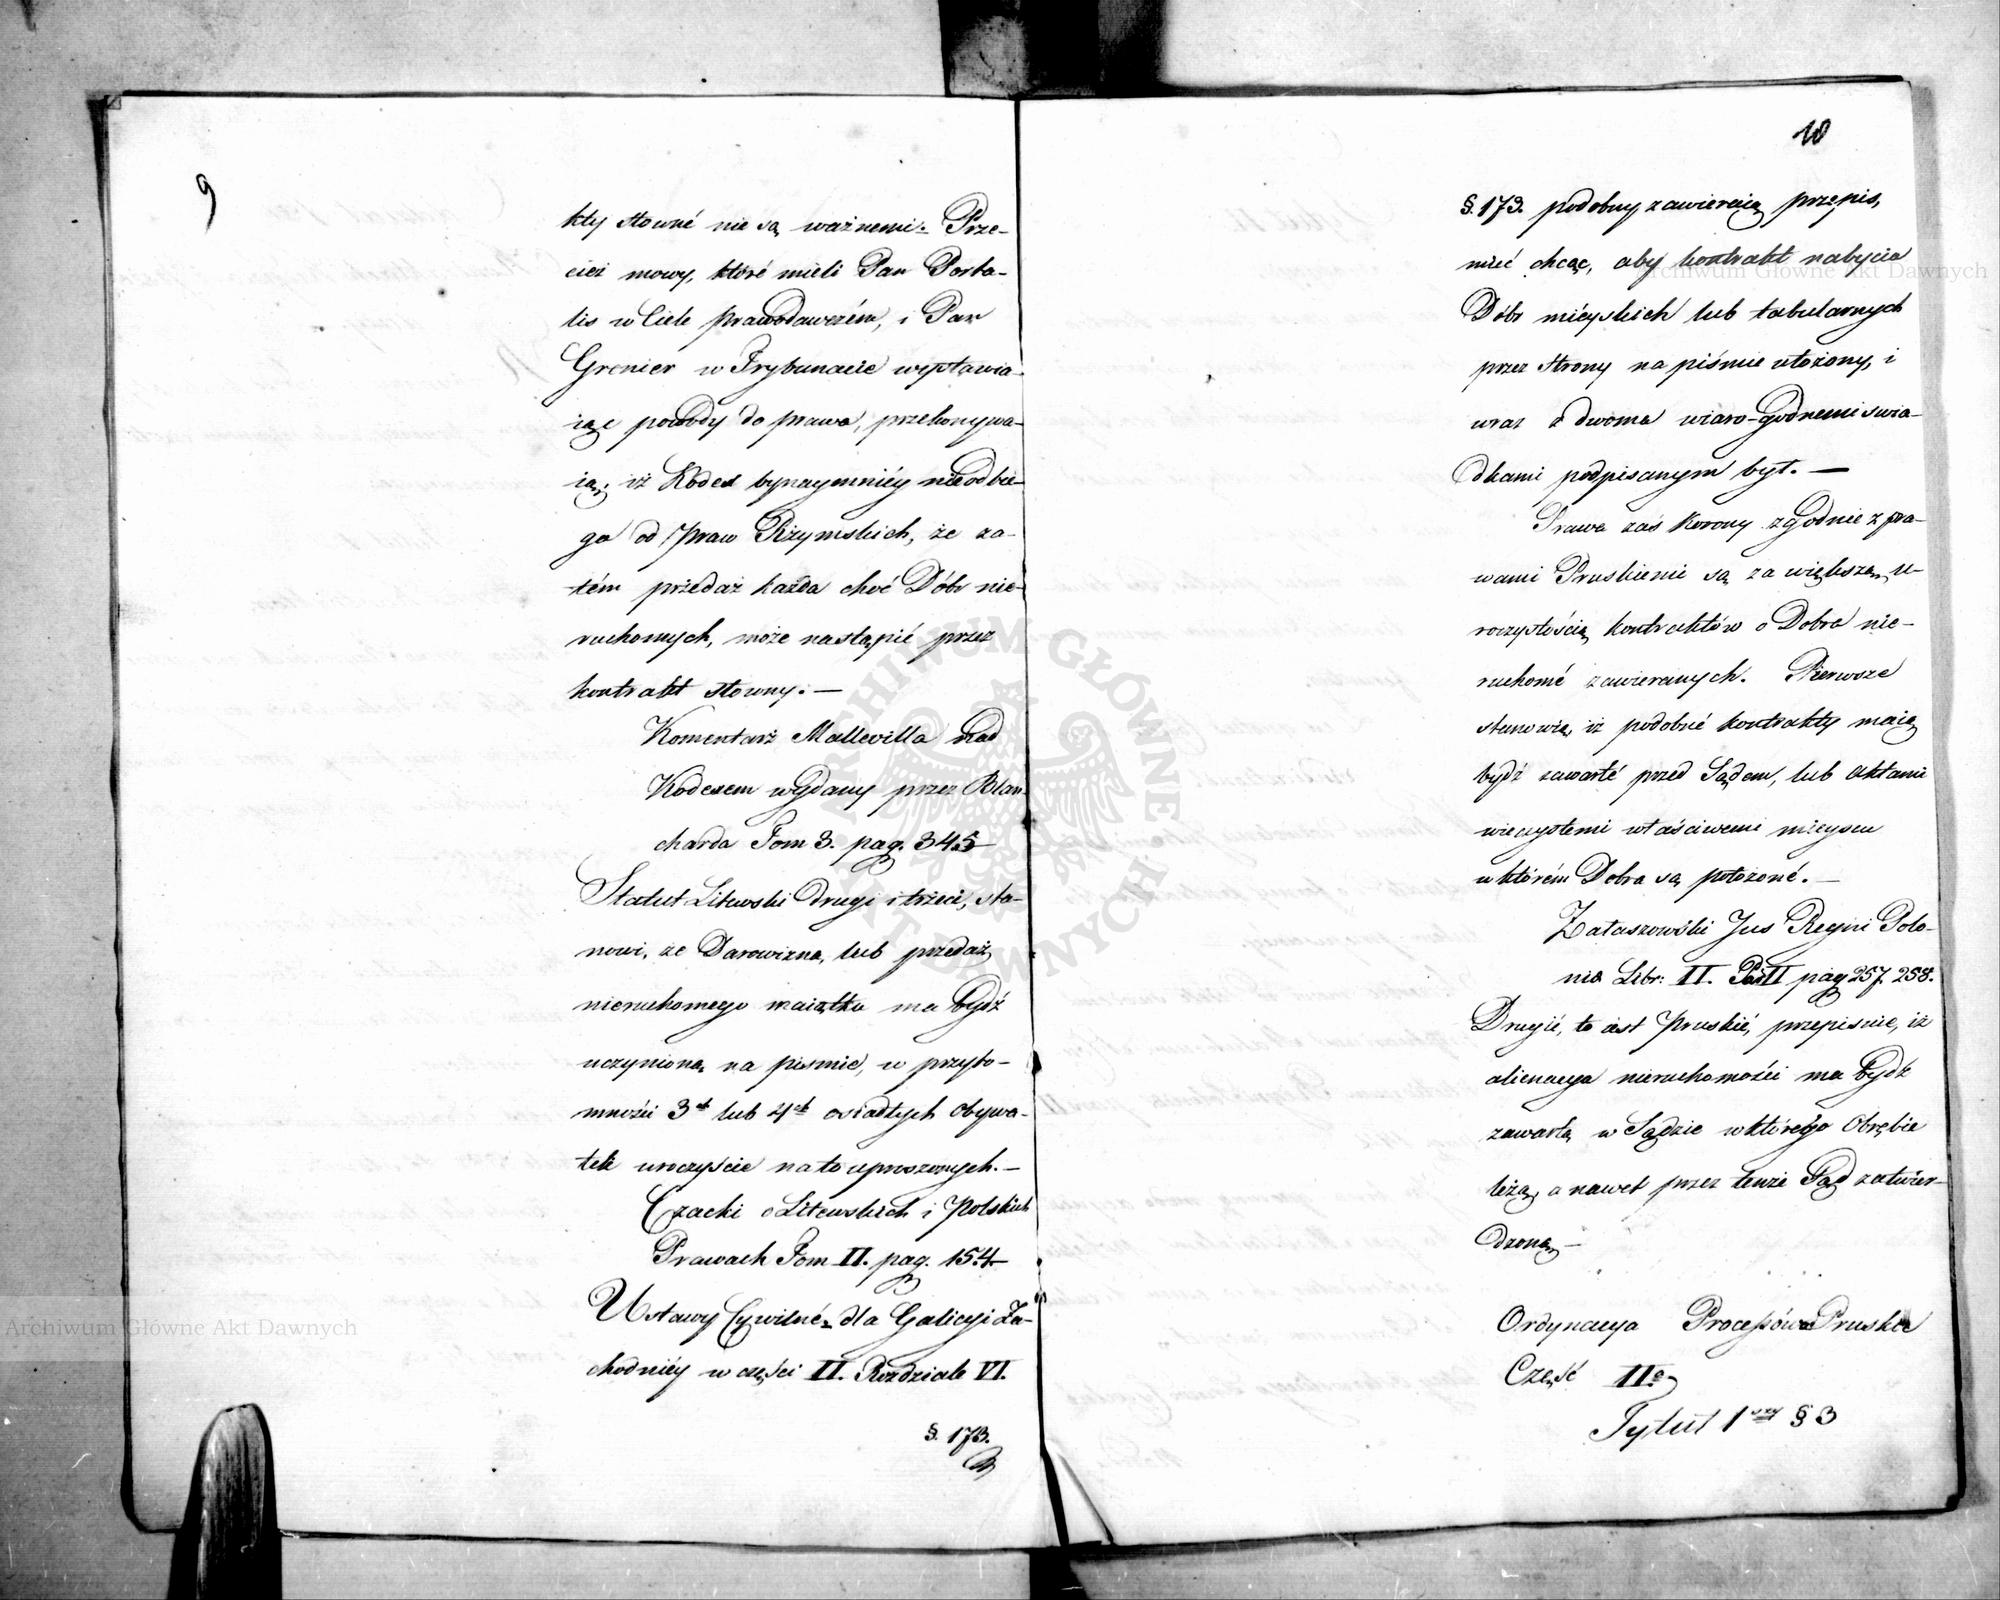 9
kty słowné nie są ważnemi. Prze-
cież mowy, któré mieli Pan Porta-
lis w Ciele prawodawczém, i Pan
Grenier w Trybunacie wystawia-
iąc powody do prawa, przekonywa-
ią, iż Kodex bynaymniéy nieodbie-
ga od praw Rzymskich, że za-
tém przedaż każda choć Dóbr nie-
ruchomych, może nastąpić przez
kontrakt słowny. —
Komentarz Mallevilla nad
Kodexem wydany przez Blan-
charda Tom 3. pag. 345
Statut Litewski drugi i trzeci, sta-
nowi, że Darowizna, lub przedaż
nieruchomego maiątku ma bydź
uczynioną na pismie, w przyto-
mności 3ch lub 4ch osiadłych obywa-
teli uroczyście na to uproszonych. —
Czacki o Litewskich i Polskich
Prawach Tom II. pag. 154
Ustawy Cywilné dla Galicyi Za-
chodniéy w części II. Rozdziale VI.
§. 173.
10
§. 173. podobny zawieraią przepis,
mieć chcąc, aby kontrakt nabycia
Dóbr miéyskich lub tabularnych
przez strony na piśmie ułożony, i
wraz z dwoma wiaro-godnemi swia-
dkami podpisanym był. —
Prawa zaś Korony zgodnie z pra-
wami Pruskiemi są za większą u-
roczystością kontraktów o Dobra nie-
ruchomé zawieranych. Pierwsze
stanowią, iż podobné kontrakty maią
bydź zawarté przed Sądem, lub aktami
wieczystemi właściwemi mieyscu
w którém Dobra są położoné. —
Zalaszowski Jus Regni Polo-
nia Libr: II. II pag 257. 258.
Drugié, to iest Pruskié, przepisuie, iż
alienacya nieruchomości ma bydź
zawartą w Sądzie w którégo Obrębie
leżą, a nawet przez tenże Sąd zatwier-
dzoną —
Ordynacya Processów Pruska
Część IIa
Tytuł 1szy § 3
Archiwum Główne Akt Dawnych
Archiwum Główne Akt Dawnych
ARCHIWUM GŁÓWNE AKT DAWNYCH